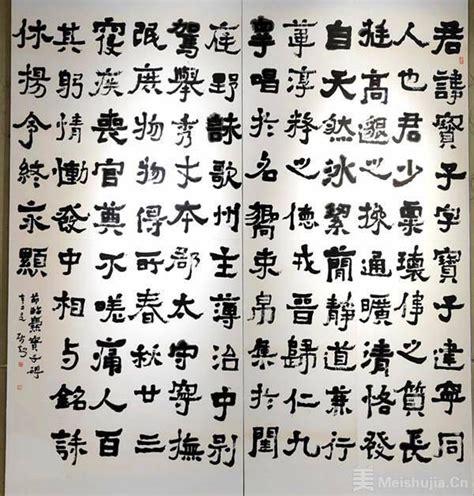 君諱寶子字寶子建寧同
人也君少稟瓌偉之質長
挺高邈之操通曠清恪發
自天然冰絜簡靜道兼行
葦淳粹之德戎晉歸仁九
皋唱於名嚮束帛集於閨
庭野詠歌州主薄治中別
駕舉秀才本郡太守撫
氓庶物物得所春秋廿三
寑疾喪官莫不嗟痛人百
其躬情慟發中相与銘誄
休揚令終永顯
節臨爨寶子碑
Meishujia.Cn